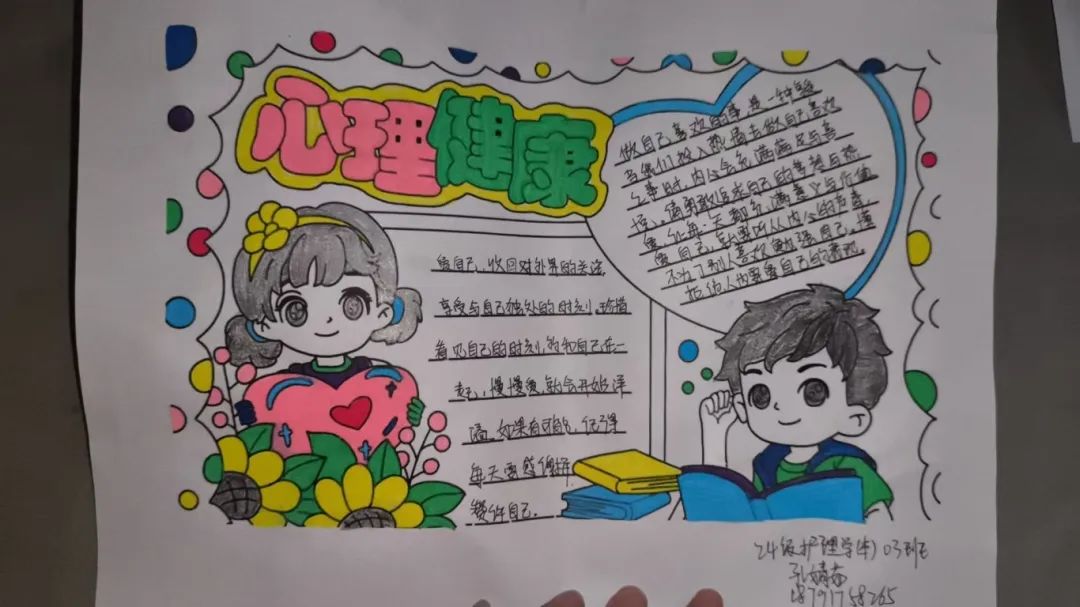 心理健康
做自己喜欢的事是一种享受
当我们投入热情去做自己喜欢
之事时,内心会充满满足与喜
悦、请勇敢追求自己的梦想与热
爱,让每一天都充满意义与价值
爱自己,就要听从内心的声音,
不为了别人喜欢勉强自己,懂
拒绝人也要爱自己的
爱自己,收回对外界的关注
享受与自己独处的时刻,珍惜
看见自己的时刻,约和自己在一
起,慢慢爱,就会开始洋
溢,如果有可能,记得
每天要感谢
赞许自己.
24级护理学(本)03班
孔婧茹
18791758265